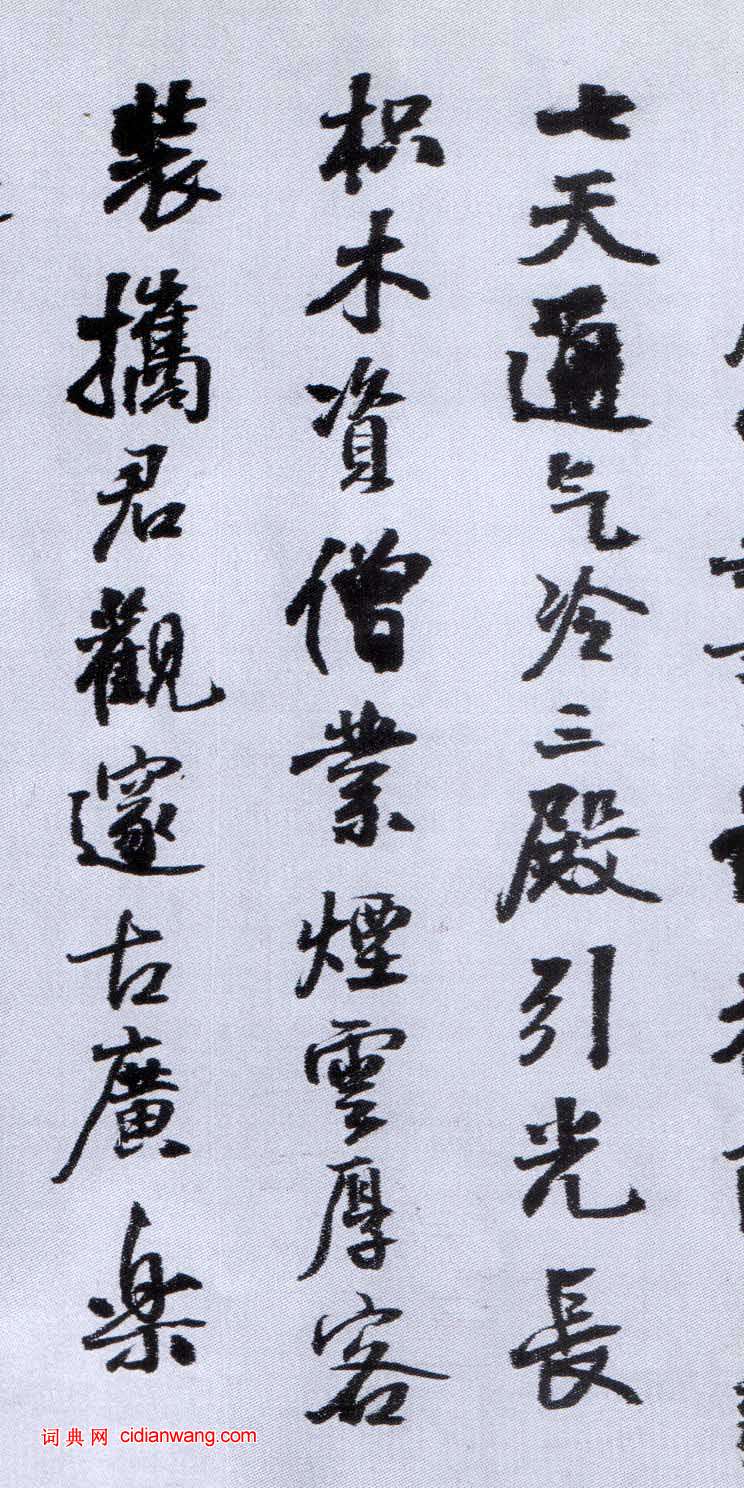 七天通气冷三殿引光長
枳木資僧業煙雲厚客
装攜君觀邃古廣樂
词典网 cidianwang.com